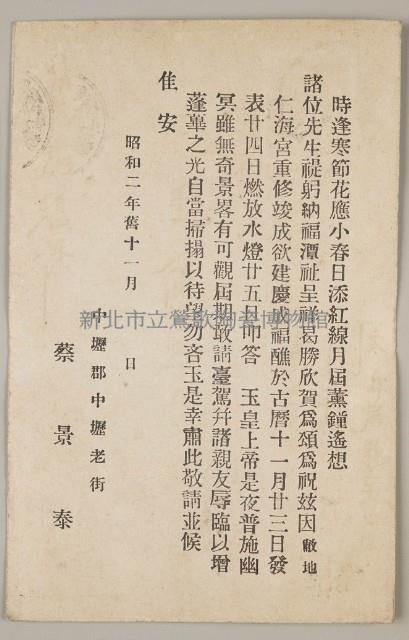 時逢寒節花應小春日添紅線月屆薰鐘遙想
諸位先生禔躬納福潭祉呈祥曷勝欣賀為頌為祝玆因敝地
仁海宮重修竣成欲建慶成福醮於古曆十一月廿三日發
表廿四日燃放水燈廿五日叩答 玉皇上帝是夜普施幽
冥雖無奇景畧有可觀屆期敢請臺駕幷諸親友辱臨以增
蓬蓽之光自當掃榻以待望勿吝玉是幸肅此敬請並候
佳安
昭和二年舊十一月 日
中壢郡中壢老街
蔡景泰
新北市立鶯歌陶瓷博物館